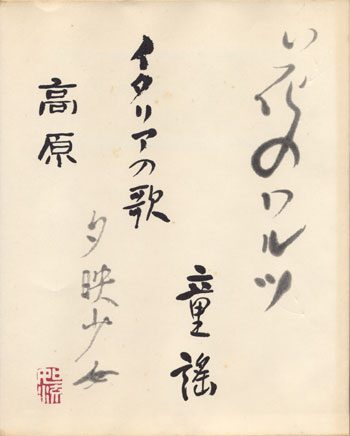 花のワルツ
童謡
イタリアの歌
高原
夕映少女